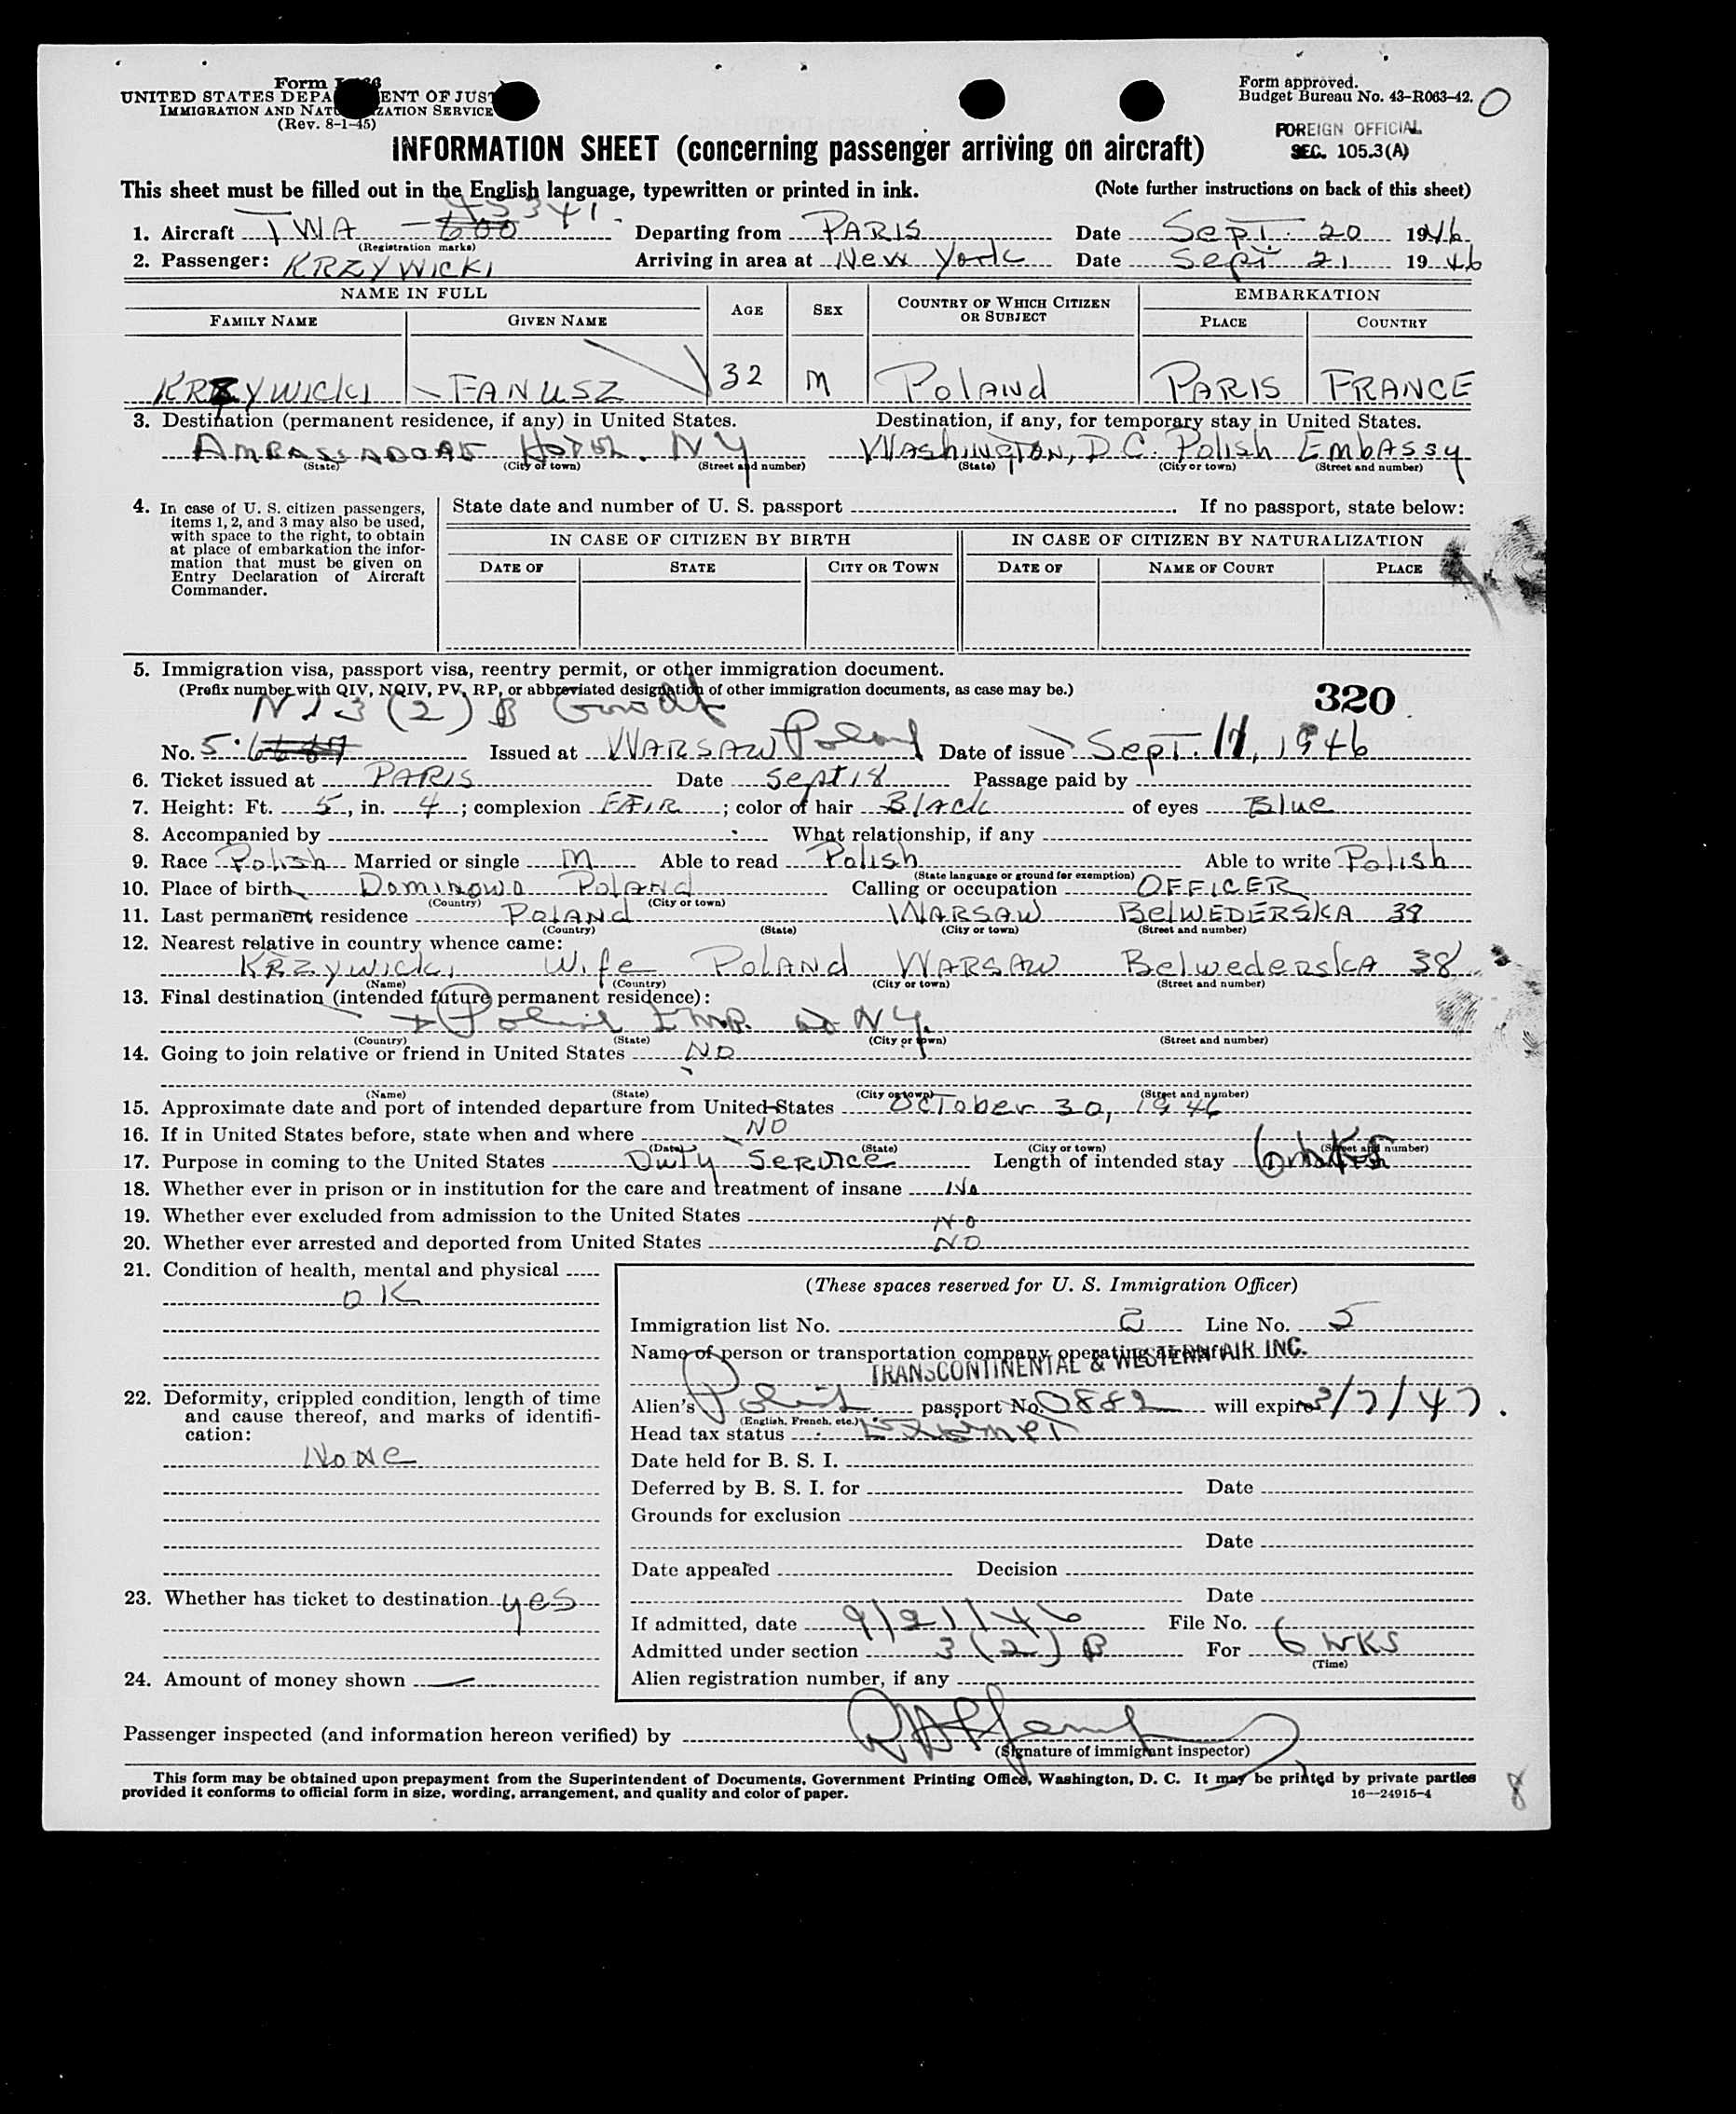 Form I-466
UNITED STATES DEPARTMENT OF JUSTICE
IMMIGRATION AND NATURALIZATION SERVICE
(Rev. 8-1-45)
Form approved.
Budget Bureau No. 43-R063-42.
FOREIGN OFFICIAL
SEC. 105.3(A)
INFORMATION SHEET (concerning passenger arriving on aircraft)
This sheet must be filled out in the English language, typewritten or printed in ink. (Note further instructions on back of this sheet)
1. Aircraft TWA 600 45341 Departing from PARIS Date Sept. 20 1946
(Registration marks)
2. Passenger: KRZYWICKI Arriving in area at New York Date Sept 21 1946
NAME IN FULL AGE SEX COUNTRY OF WHICH CITIZEN OR SUBJECT EMBARKATION
FAMILY NAME GIVEN NAME PLACE COUNTRY
KRZYWICKI JANUSZ 32 M Poland PARIS FRANCE
3. Destination (permanent residence, if any) in United States. Destination, if any, for temporary stay in United States.
AMBASSADOR HOTEL. NY Washington, D.C. Polish Embassy
(State) (City or town) (Street and number) (State) (City or town) (Street and number)
4. In case of U. S. citizen passengers, items 1, 2, and 3 may also be used, with space to the right, to obtain at place of embarkation the information that must be given on Entry Declaration of Aircraft Commander.
State date and number of U. S. passport If no passport, state below:
IN CASE OF CITIZEN BY BIRTH IN CASE OF CITIZEN BY NATURALIZATION
DATE OF STATE CITY OR TOWN DATE OF NAME OF COURT PLACE
5. Immigration visa, passport visa, reentry permit, or other immigration document.
(Prefix number with QIV, NQIV, PV, RP, or abbreviated designation of other immigration documents, as case may be.)
320
3(2) B Govt
No. 5 Issued at WARSAW Poland Date of issue Sept. 17, 1946
6. Ticket issued at PARIS Date Sept 18 Passage paid by
7. Height: Ft. 5, in. 4; complexion FAIR; color of hair Black of eyes Blue
8. Accompanied by What relationship, if any
9. Race Polish Married or single M Able to read Polish Able to write Polish
(State language or ground for exemption)
10. Place of birth Dominowo Poland Calling or occupation OFFICER
(Country) (City or town)
11. Last permanent residence Poland WARSAW BelWEDERSKA 38
(Country) (State) (City or town) (Street and number)
12. Nearest relative in country whence came:
KRZYWICKI Wife Poland WARSAW Belwederska 38
(Name) (Country) (City or town) (Street and number)
13. Final destination (intended future permanent residence):
Polish NY.
(Country) (State) (City or town) (Street and number)
14. Going to join relative or friend in United States NO
(Name) (State) (City or town) (Street and number)
15. Approximate date and port of intended departure from United States October 30, 1946
16. If in United States before, state when and where NO
(Date) (State) (City or town) (Street and number)
17. Purpose in coming to the United States Duty Service Length of intended stay 6 wks
18. Whether ever in prison or in institution for the care and treatment of insane No
19. Whether ever excluded from admission to the United States NO
20. Whether ever arrested and deported from United States NO
21. Condition of health, mental and physical
OK
22. Deformity, crippled condition, length of time and cause thereof, and marks of identification:
None
23. Whether has ticket to destination yes
24. Amount of money shown —
(These spaces reserved for U. S. Immigration Officer)
Immigration list No. 2 Line No. 5
Name of person or transportation company operating aircraft
TRANSCONTINENTAL & WESTERN AIR INC.
Alien's Polish passport No. 0882 will expire 3/7/47.
(English, French, etc.)
Head tax status Exempt
Date held for B. S. I.
Deferred by B. S. I. for Date
Grounds for exclusion
Date
Date appealed Decision
Date
If admitted, date 9/21/46 File No.
Admitted under section 3(2) B For 6 WKS
(Time)
Alien registration number, if any
Passenger inspected (and information hereon verified) by
(Signature of immigrant inspector)
This form may be obtained upon prepayment from the Superintendent of Documents, Government Printing Office, Washington, D. C. It may be printed by private parties
provided it conforms to official form in size, wording, arrangement, and quality and color of paper. 16—24915-4
8